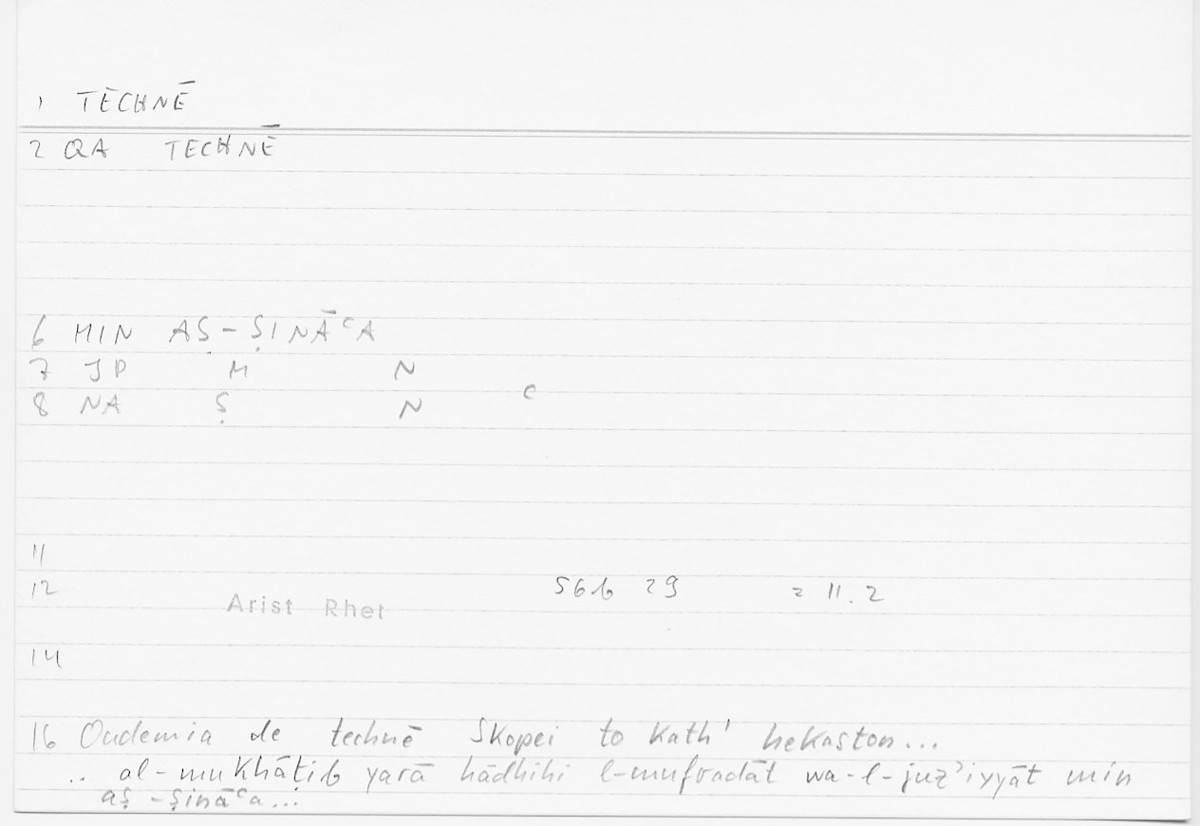 1 TECHNĒ
2 QA TECHNĒ
6 MIN AṢ-ṢINĀʿA
7 JP M N
8 NA Ṣ N ʿ
11
12 Arist Rhet 56b 29 = 11.2
14
16 Oudemia de technē skopei to kath' hekaston...
.. al-mukhāṭib yarā hādhihi l-mufradāt wa-l-juzʾiyyāt min
aṣ-ṣināʿa...